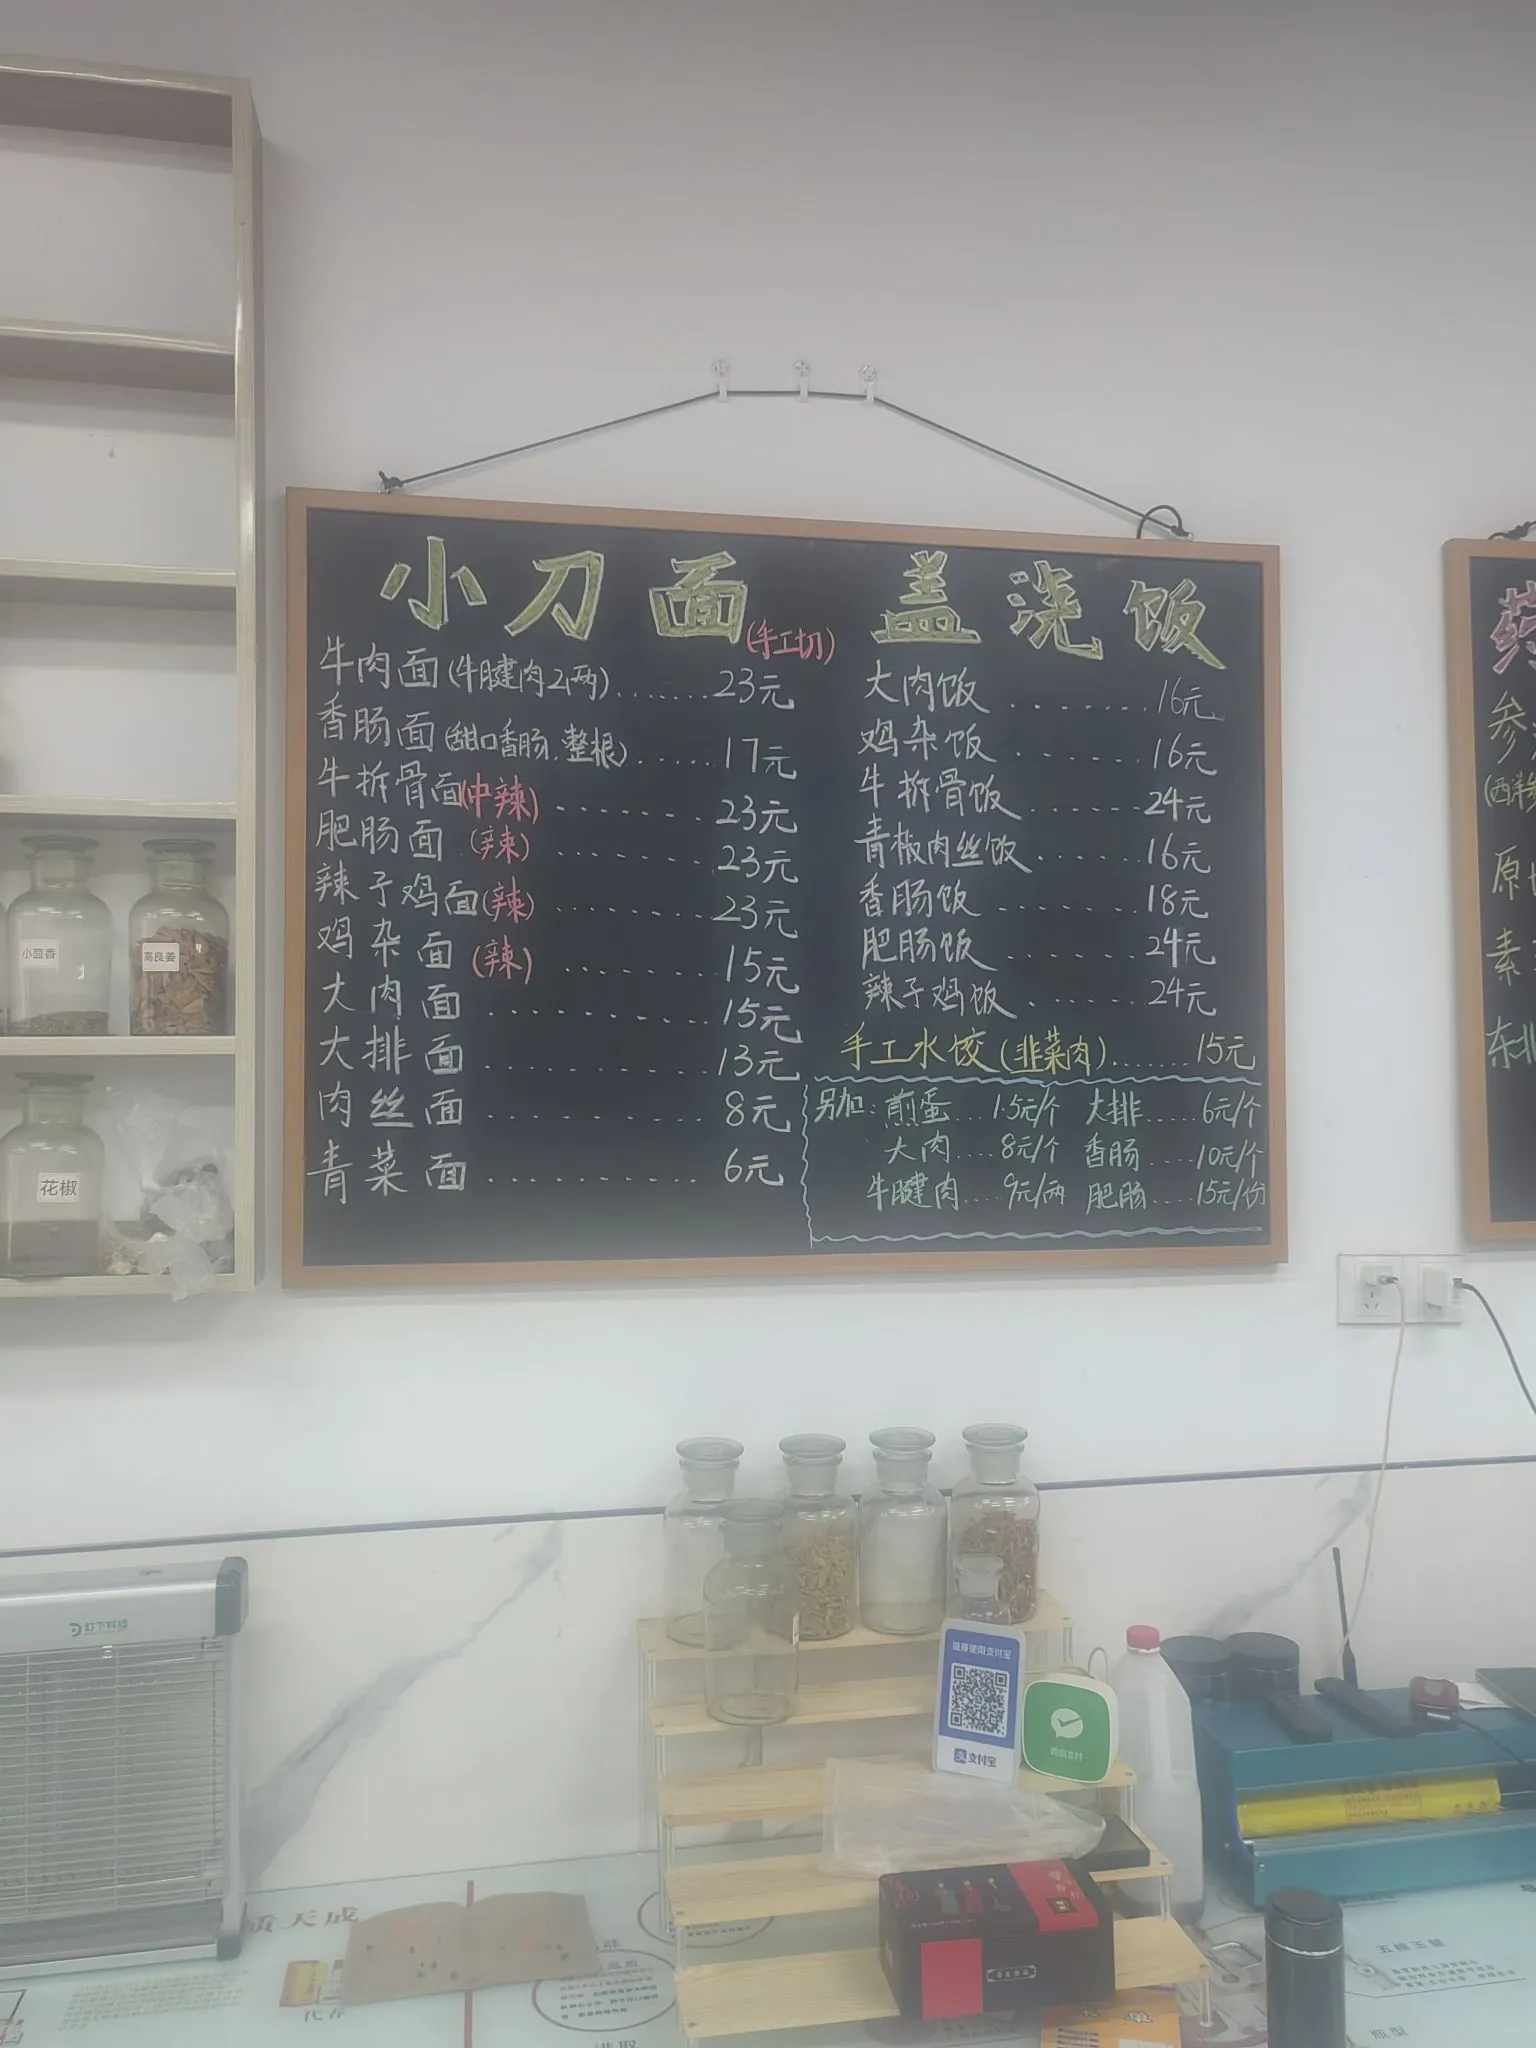 小刀面
(手工切)
牛肉面(牛腱肉2两).......23元
香肠面(甜口香肠,整根)......17元
牛拆骨面(中辣)........23元
肥肠面(辣)........23元
辣子鸡面(辣)........23元
鸡杂面(辣)........15元
大肉面............15元
大排面............13元
肉丝面............8元
青菜面............6元
盖浇饭
大肉饭........16元
鸡杂饭.......16元
牛拆骨饭.......24元
青椒肉丝饭......16元
香肠饭.......18元
肥肠饭.......24元
辣子鸡饭......24元
手工水饺(韭菜肉).......15元
另加:煎蛋...1.5元/个 大排.....6元/个
大肉....8元/个 香肠....10元/个
牛腱肉....9元/两 肥肠....15元/份
参
(西洋
原
素
东北
小茴香
高良姜
花椒
推荐使用支付宝
支付宝
微信支付
天成
五粮玉髓
瓶型